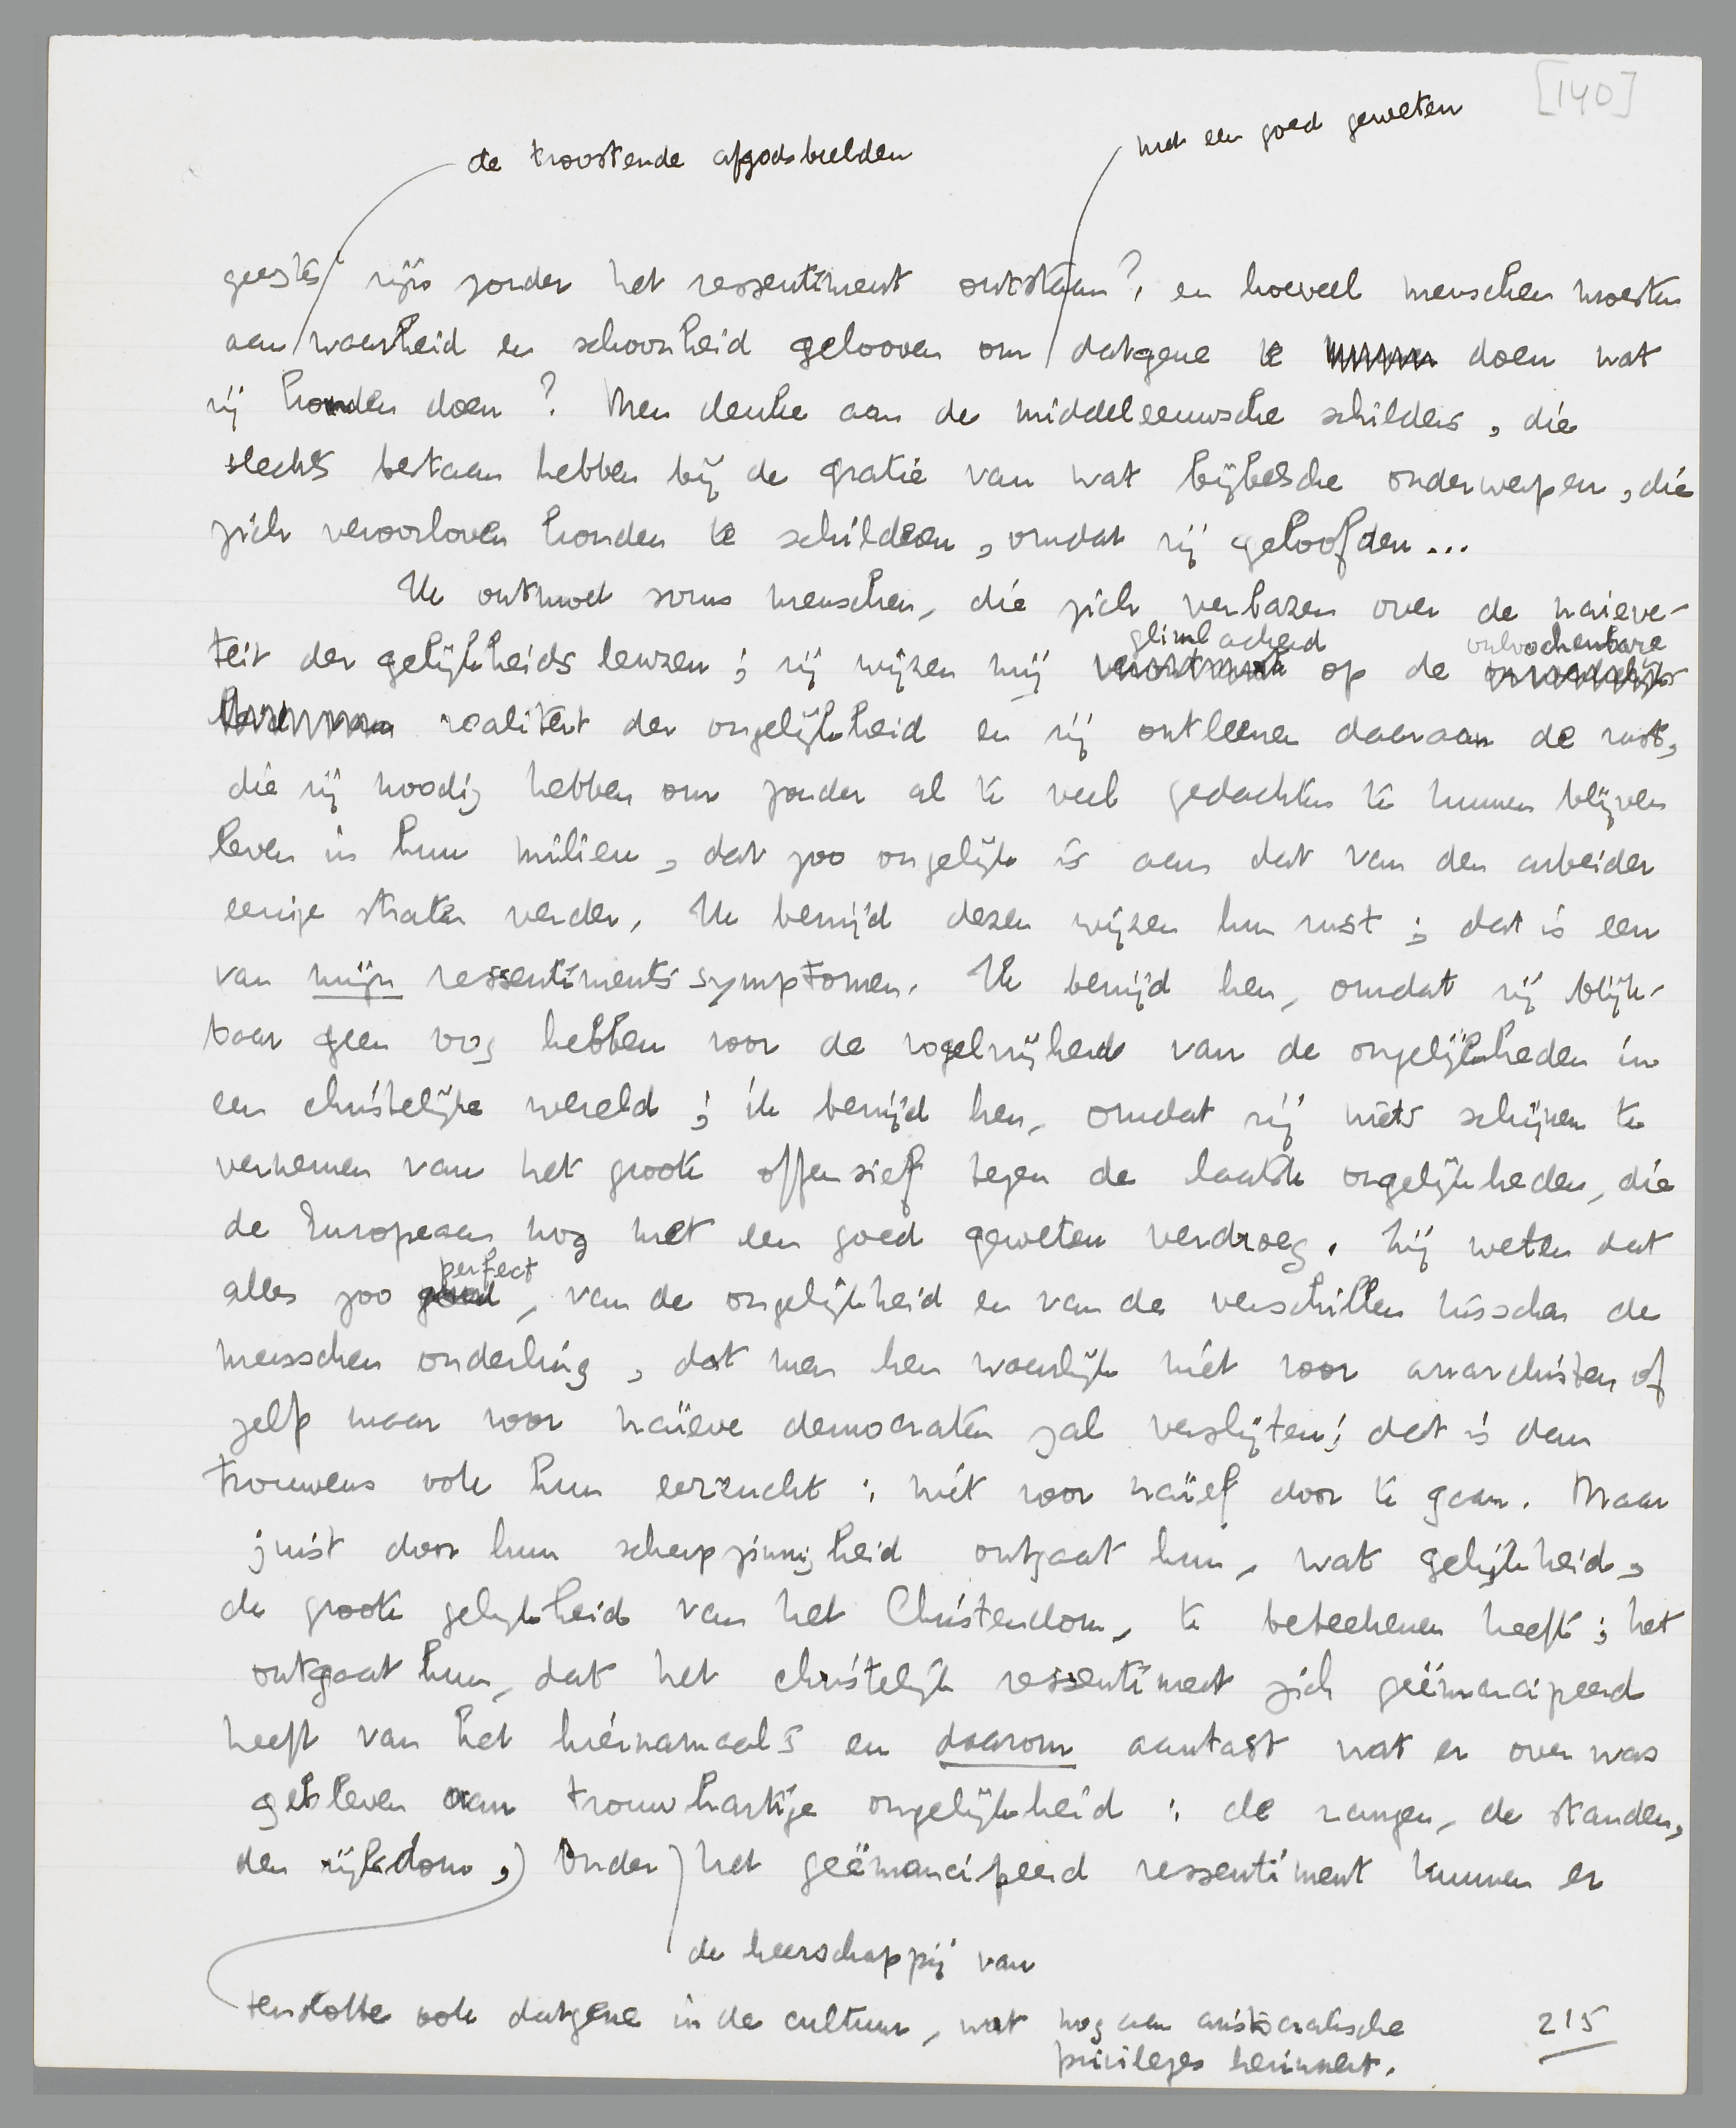 [140]
de troostende afgodsbeelden
met een goed geweten
zijn zonder het ressentiment ontstaan? en hoeveel menschen moesten
aan waarheid en schoonheid gelooven om datgene te doen wat
zij konden doen? Men denke aan de middeleeuwsche schilders, die
slechts bestaan hebben bij de gratie van wat bijbelsche onderwerpen, die
zich veroorloven konden te schilderen, omdat zij geloofden...
Ik ontmoet soms menschen, die zich verbazen over de naieve-
glimlachend onloochenbare
teit der gelijkheids leuzen; zij wijzen mij op de
realiteit der ongelijkheid en zij ontleenen daaraan de rust,
die zij noodig hebben om zonder al te veel gedachten te kunnen blijven
leven in hun milieu, dat zoo ongelijk is aan dat van den arbeider
eenige straten verder. Ik benijd dezen wijzen hun rust; dat is een
van mijn ressentiments symptomen. Ik benijd hen, omdat zij blijk-
baar geen oog hebben voor de vogelvrijheid van de ongelijkheden in
een christelijke wereld; ik benijd hen, omdat zij niets schijnen te
vernemen van het groote offensief tegen de laatste ongelijkheden, die
de Europeaan nog met een goed geweten verdroeg. Zij weten dat
perfect
alles zoo goed, van de ongelijkheid en van de verschillen tusschen de
menschen onderling, dat men hen waarlijk niet voor anarchisten of
zelfs maar voor naïeve democraten zal verslijten; dat is dan
trouwens ook hun eerzucht: niet voor naïef door te gaan. Maar
juist door hun scherpzinnigheid ontgaat hun, wat gelijkheid,
de groote gelijkheid van het Christendom, te beteekenen heeft; het
ontgaat hun, dat het christelijk ressentiment zich geëmancipeerd
heeft van het hiernamaals en daarom aantast wat er over was
gebleven aan trouwhartige ongelijkheid: de rangen, de standen,
den rijkdom,) Onder het geëmancipeerd ressentiment kunnen er
de heerschappij van
tenslotte ook datgene in de cultuur, wat nog aan aristocratische
privileges herinnert.
215